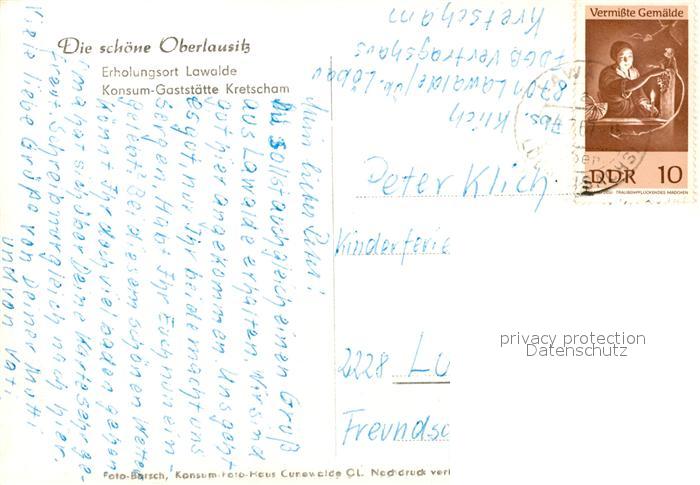 Die schöne Oberlausitz
Erholungsort Lawalde
Konsum-Gaststätte Kretscham
Mein lieber
Du sollst auch gleich einen Gruß
aus Lawalde erhalten. Wir sind
gut hier angekommen. Uns geht
es gut, nur Ihr beide macht uns
Sorgen. Habt Ihr Euch nun ein-
gelebt? Bei diesem schönen Wetter
könnt Ihr doch viel baden gehen.
hat sich über Deine Karte sehr ge-
freut. Schreib nur gleich nach hier.
Viele liebe Grüße von Deiner Mutti
und von Vati
Abs. Klich
8701 Lawalde/üb. Löbau
FDGB Vertragshaus
Kretscham
Vermißte Gemälde
DDR 10
TRAUBENPFLÜCKENDES MÄDCHEN
Peter Klich
Kinderferie
2228 Lu
Freundsc
privacy protection
Datenschutz
Foto-Bartsch, Konsum-Foto-Haus Cunewalde OL. Nachdruck verb